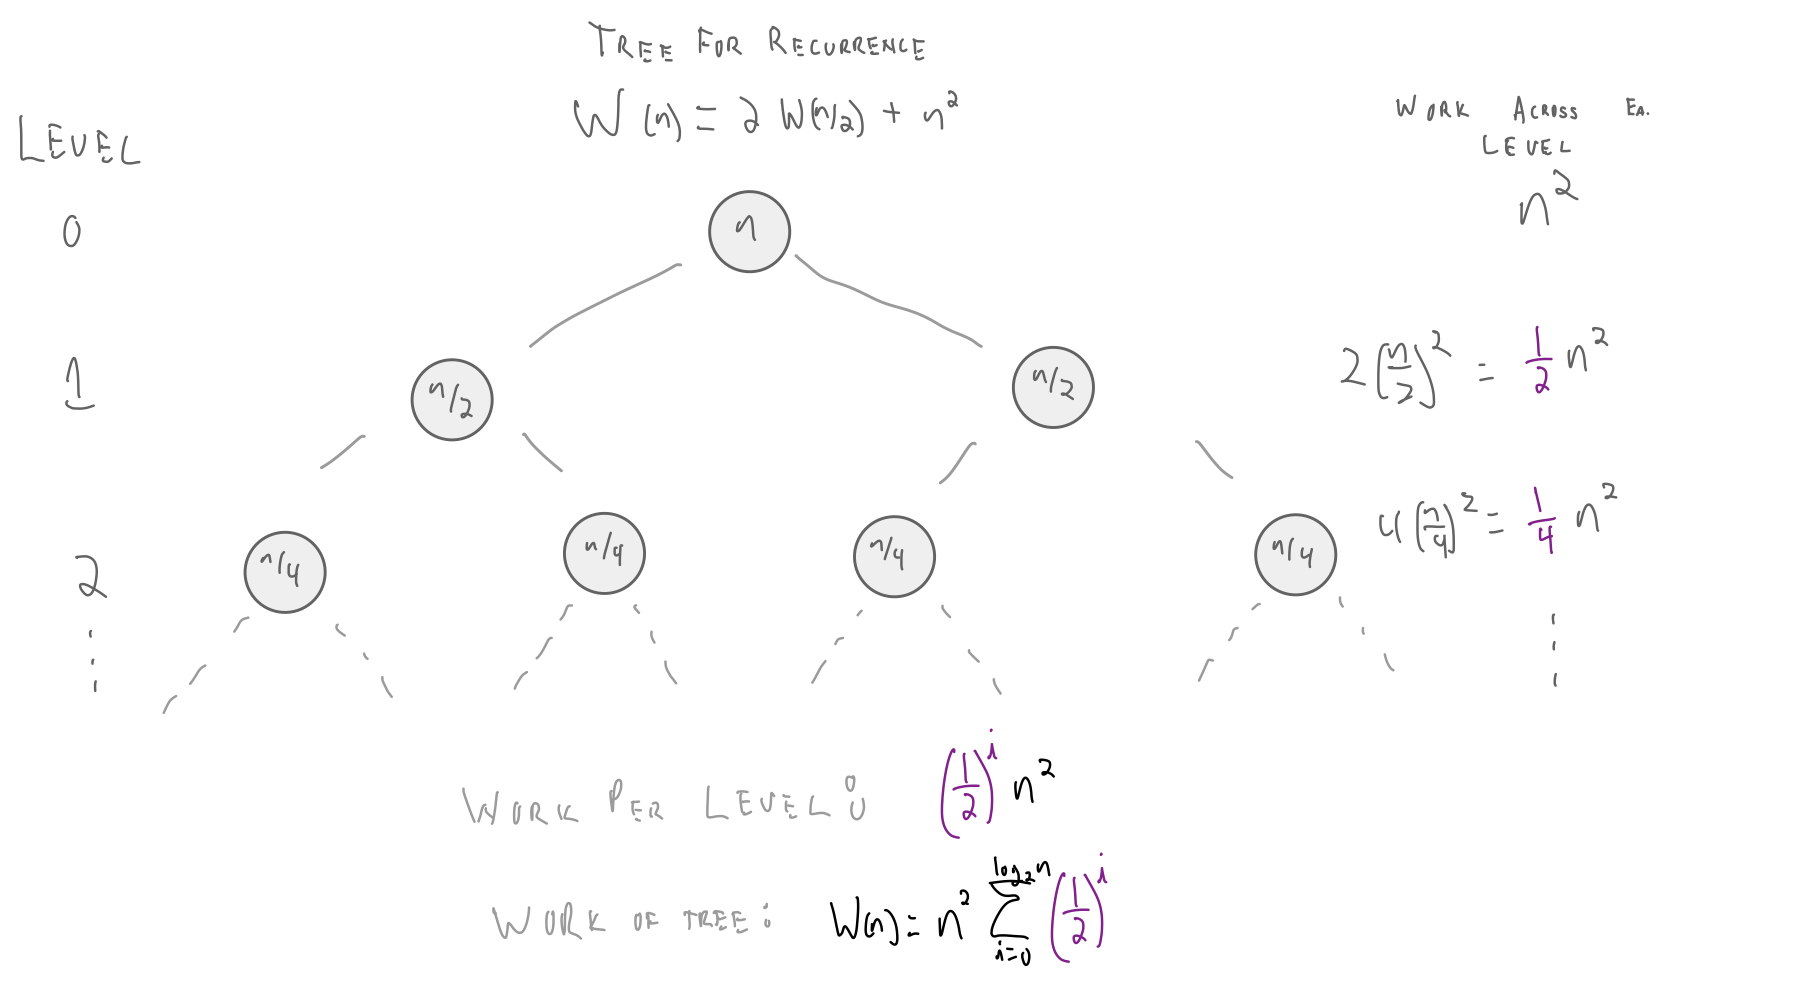 TREE FOR RECURRENCE
W(n) = 2 W(n/2) + n²
LEVEL
WORK ACROSS EA.
LEVEL
0
n
n²
1
n/2
n/2
2(n/2)² = 1/2 n²
2
n/4
n/4
n/4
n/4
4(n/4)² = 1/4 n²
WORK PER LEVEL: (1/2)^i n²
WORK OF TREE: W(n) = n² ∑_{i=0}^{log₂n} (1/2)^i